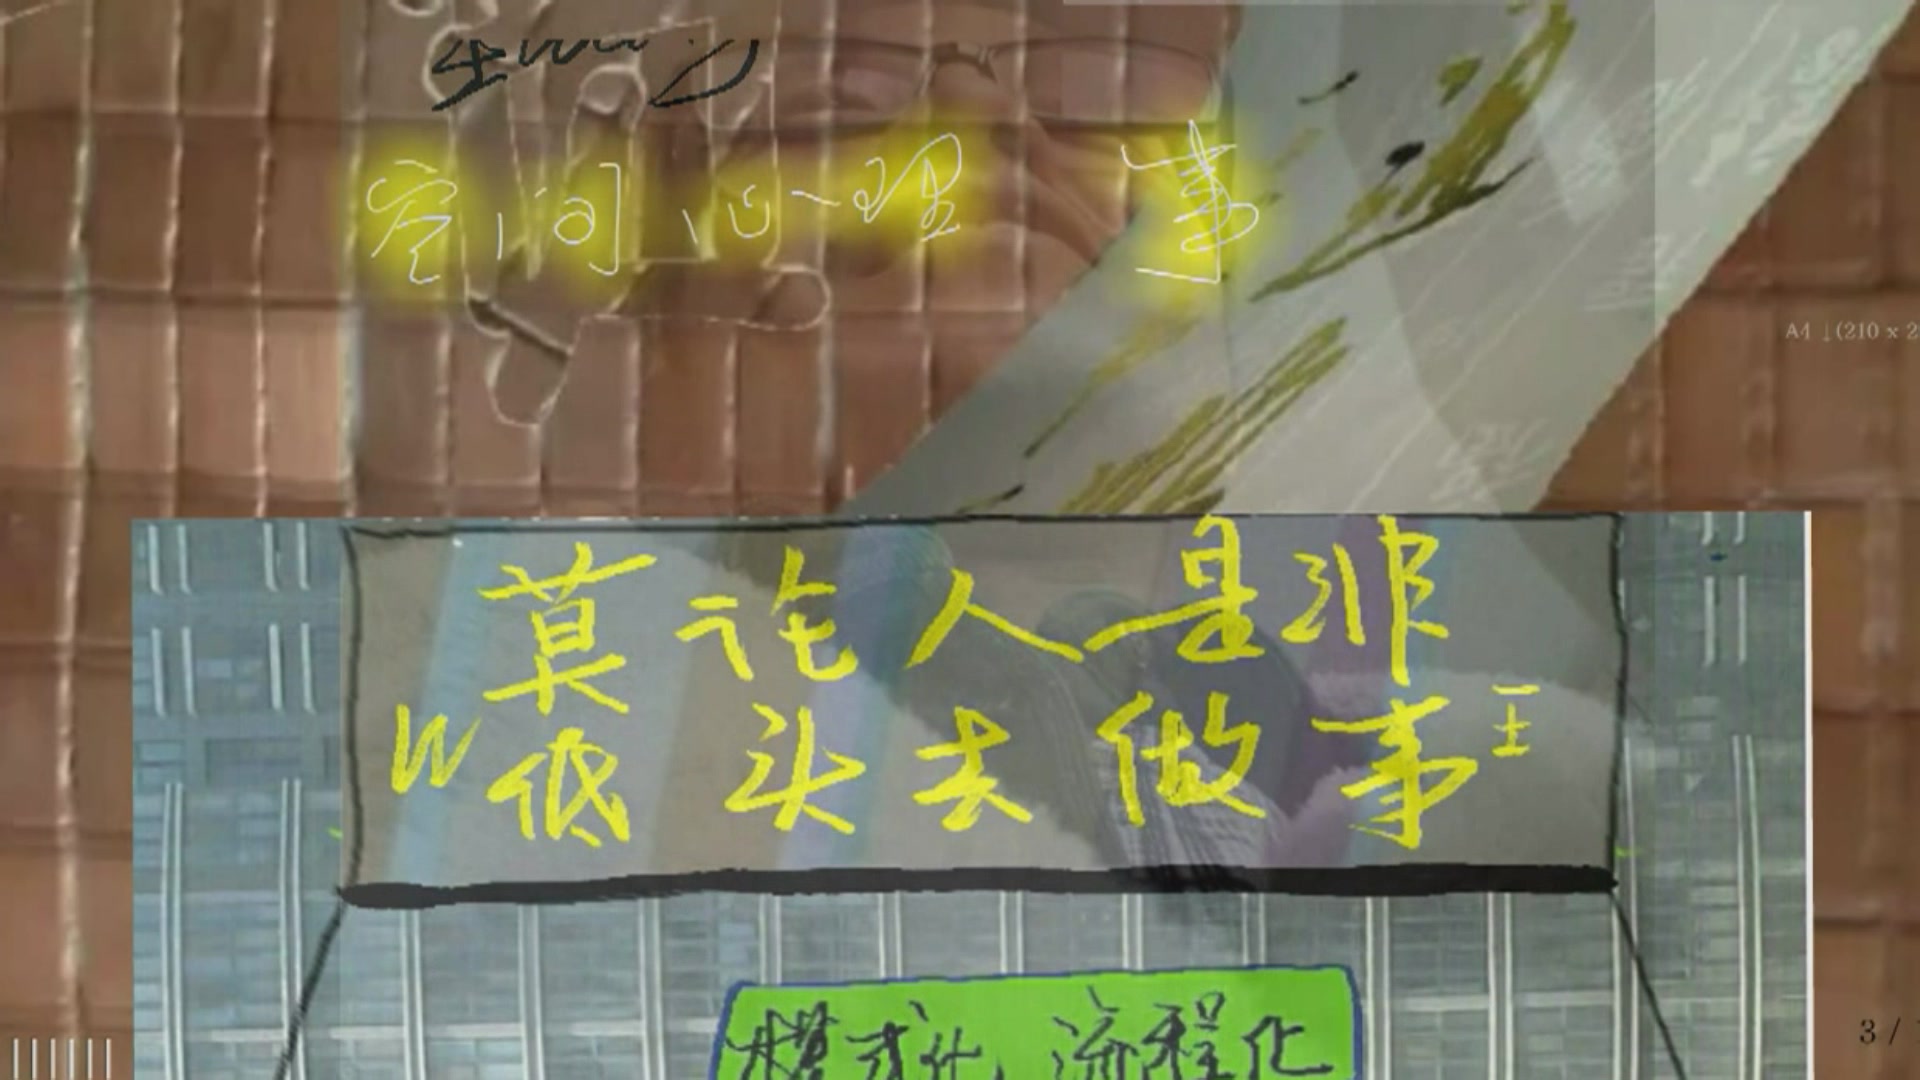 空间心理 事
A4 ↓(210 x 2
莫论人是非
W低头去做事
模式化 流程化
3 /